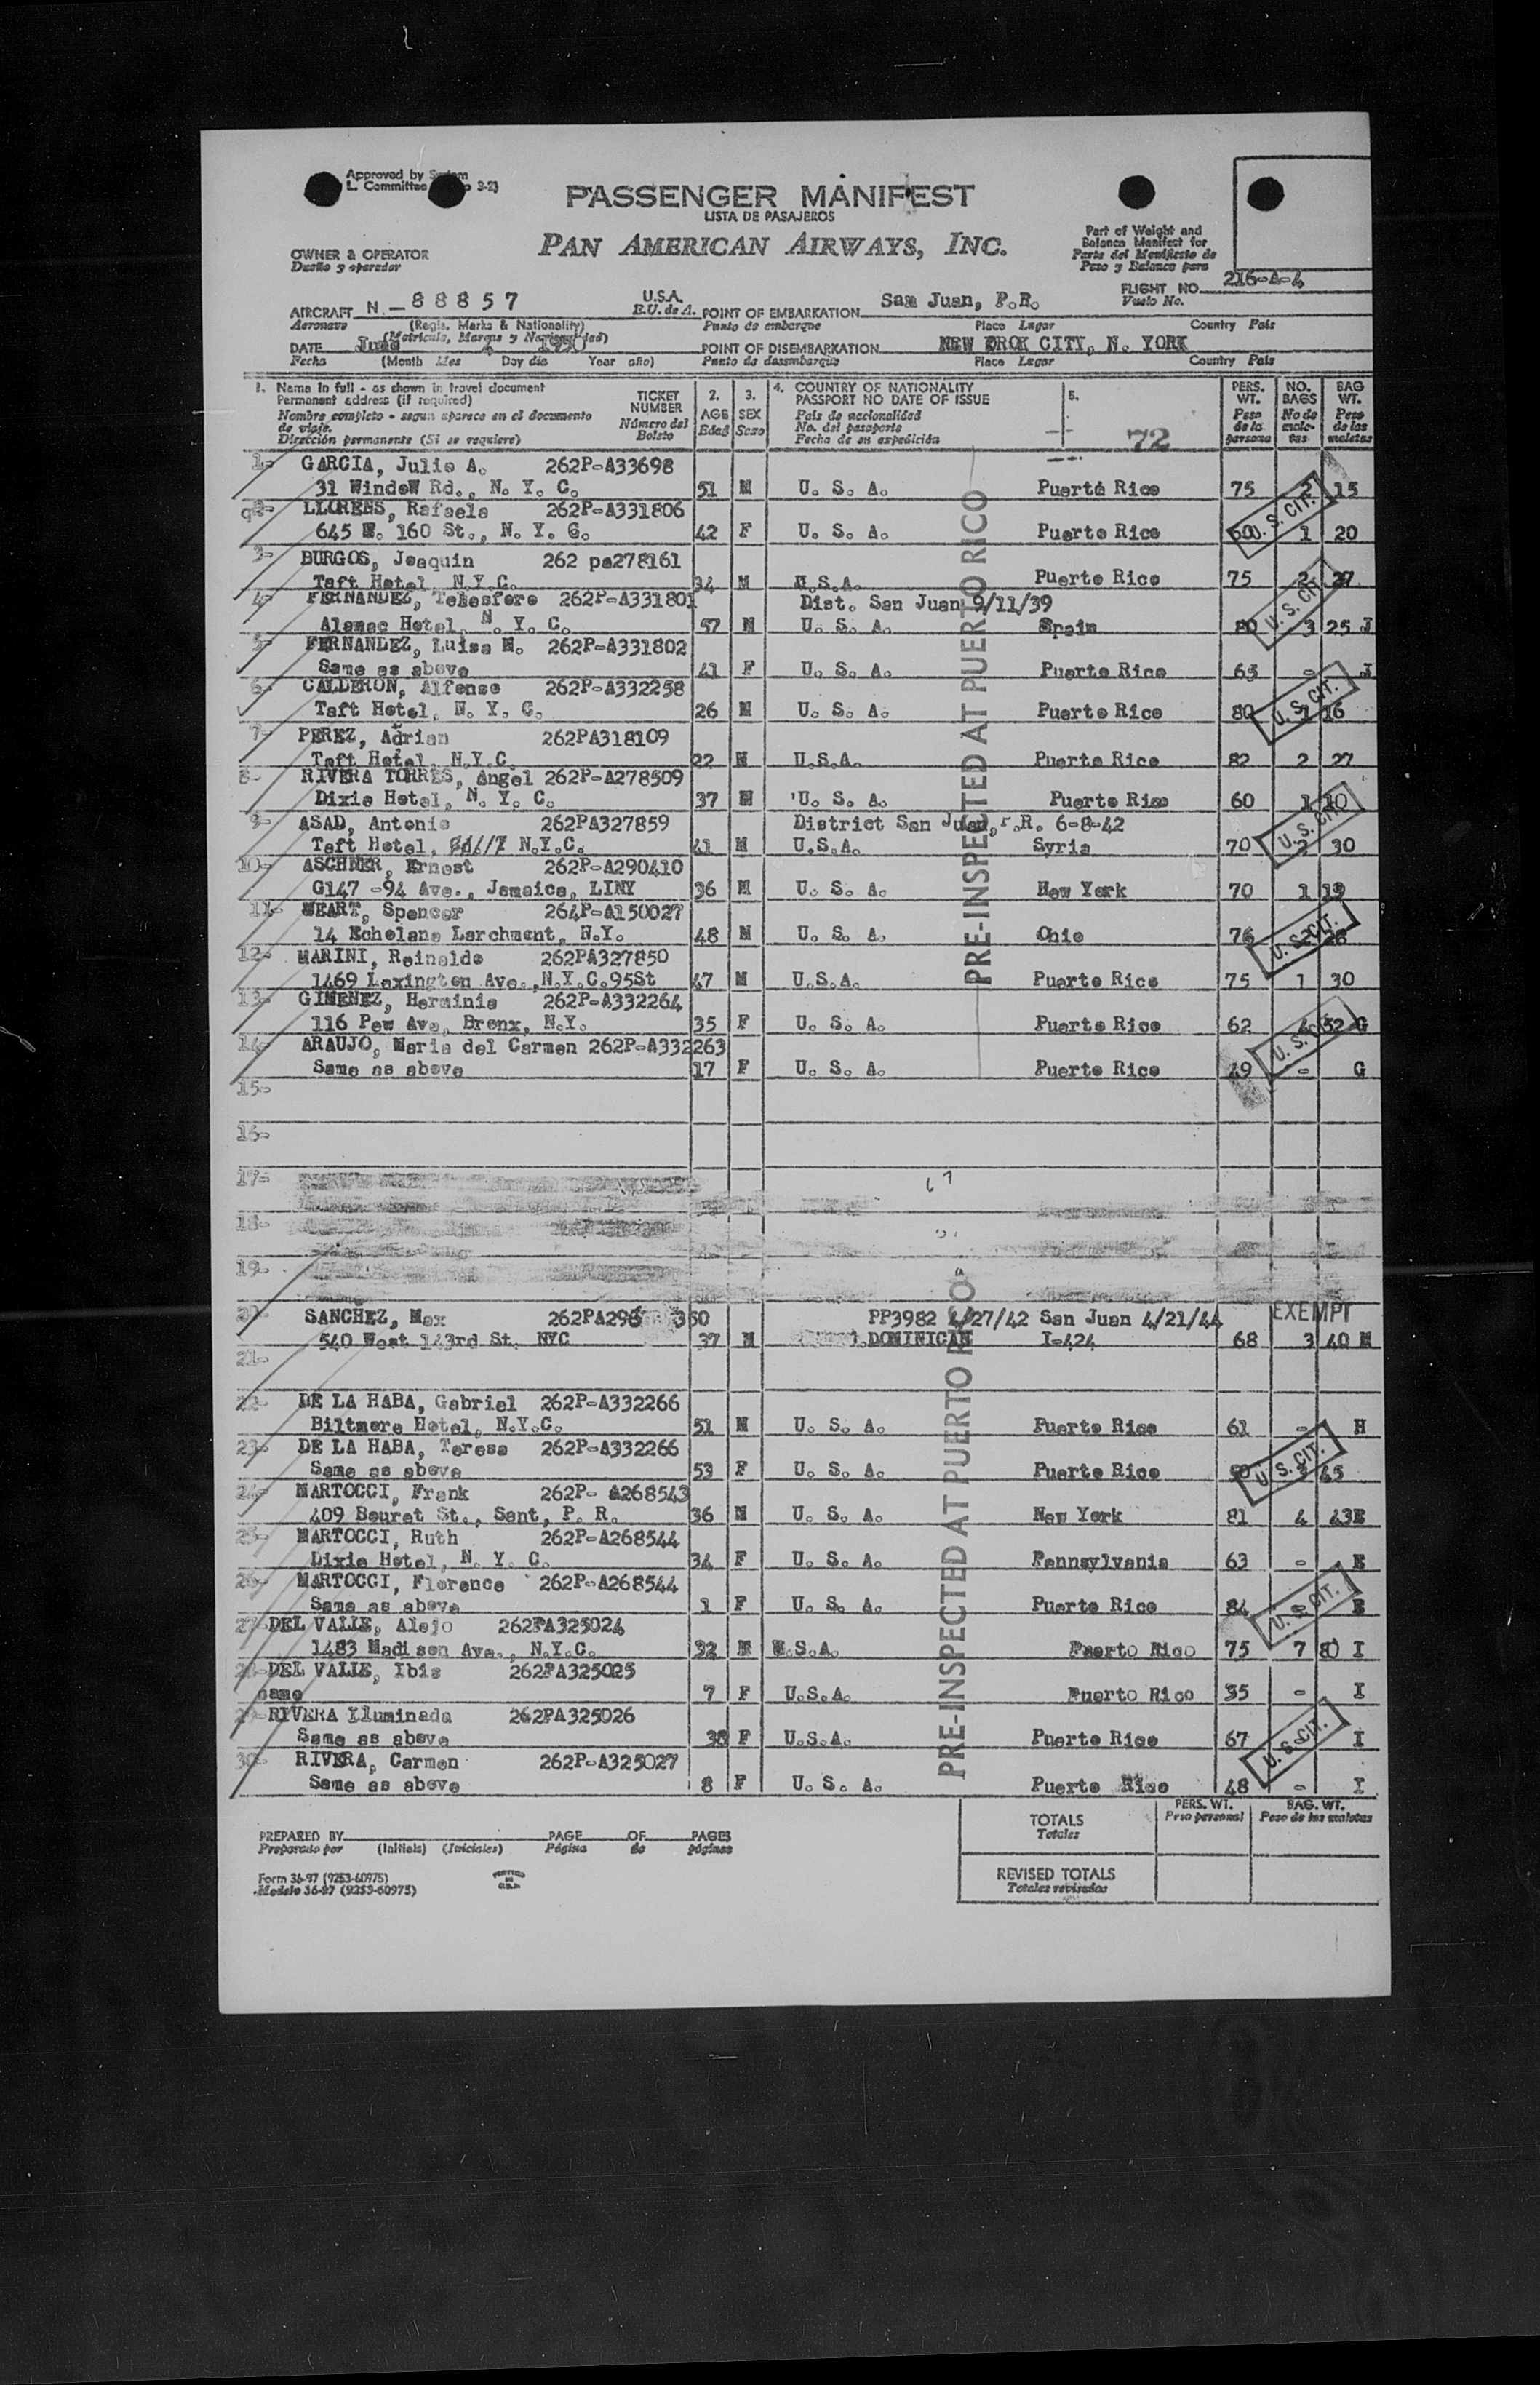 Approved by System
L. Committee 3-2)
PASSENGER MANIFEST
LISTA DE PASAJEROS
PAN AMERICAN AIRWAYS, INC.
Part of Weight and
Balance Manifest for
Parte del Manifiesto de
Peso y Balance para
OWNER & OPERATOR
Dueño y operador
FLIGHT NO. 216-A-4
Vuelo No.
AIRCRAFT N - 88857 U.S.A. POINT OF EMBARKATION San Juan, P.R.
E.U. de A.
Aeronave (Regis. Marks & Nationality) Punto de embarque Place Lugar Country Pais
(Matricula, Marcas y Nacionalidad)
DATE June 1950 POINT OF DISEMBARKATION NEW YROK CITY, N. YORK
Fecha (Month Mes Day dia Year año) Punto de desembarque Place Lugar Country Pais
1. Name in full - as shown in travel document
Permanent address (if required)
Nombre completo - segun aparece en el documento
de viaje.
Dirección permanente (Si se requiere)
TICKET
NUMBER
Número del
Boleto
2.
AGE
Edad
3.
SEX
Sexo
4. COUNTRY OF NATIONALITY
PASSPORT NO DATE OF ISSUE
Pais de nacionalidad
No. del pasaporte
Fecha de su expedición
5.
72
PERS.
WT.
Peso
de la
persona
NO.
BAGS
No de
male-
tas
BAG
WT.
Peso
de las
maletas
1- GARCIA, Julio A. 262P-A33698
31 WindoW Rd., N. Y. C. 51 M U. S. A. Puerto Rico 75 2 15
2- LLORENS, Rafaela 262P-A331806
645 W. 160 St., N. Y. C. 42 F U. S. A. Puerto Rico 1 20
3- BURGOS, Joaquin 262 pa278161
Taft Hotel, N.Y.C. 34 M U.S.A. Puerto Rico 75 2 27
4- FERNANDEZ, Telesfero 262P-A331801 Dist. San Juan 9/11/39
Alamac Hotel, N. Y. C. 57 M U. S. A. Spain 80 3 25 J
5- FERNANDEZ, Luisa M. 262P-A331802
Same as above 41 F U. S. A. Puerto Rico 63 - J
6- CALDERON, Alfonso 262P-A332258
Taft Hotel, N. Y. C. 26 M U. S. A. Puerto Rico 80 1 16
7- PEREZ, Adrian 262PA318109
Taft Hotel, N.Y.C. 22 M U.S.A. Puerto Rico 82 2 27
8- RIVERA TORRES, Angel 262P-A278509
Dixie Hotel, N. Y. C. 37 M U. S. A. Puerto Rico 60 1 10
9- ASAD, Antonio 262PA327859 District San Juan, P.R. 6-8-42
Taft Hotel, N.Y.C. 41 M U.S.A. Syria 70 2 30
10- ASCHNER, Ernest 262P-A290410
G147 -94 Ave., Jamaica, LINY 36 M U. S. A. New York 70 1 19
11- WEART, Spencer 264P-A150027
14 Echelane Larchment, N.Y. 48 M U. S. A. Ohio 76 2 28
12- MARINI, Reinaldo 262PA327850
1469 Lexington Ave., N.Y.C.95St 47 M U.S.A. Puerto Rico 75 1 30
13- GIMENEZ, Herminia 262P-A332264
116 Pew Ave, Bronx, N.Y. 35 F U. S. A. Puerto Rico 62 4 52 G
14- ARAUJO, Maria del Carmen 262P-A332263
Same as above 17 F U. S. A. Puerto Rico 49 - G
15-
16-
17-
18-
19-
20- SANCHEZ, Max 262PA296 350 PP3982 4/27/42 San Juan 4/21/44 EXEMPT
540 West 143rd St. NYC 37 M DOMINICAN I-424 68 3 40 M
21-
22- DE LA HABA, Gabriel 262P-A332266
Biltmore Hotel, N.Y.C. 51 M U. S. A. Puerto Rico 61 - H
23- DE LA HABA, Teresa 262P-A332266
Same as above 53 F U. S. A. Puerto Rico 50 3 45
24- MARTOCCI, Frank 262P- A268543
409 Bouret St., Sant, P. R. 36 M U. S. A. New York 81 4 43E
25- MARTOCCI, Ruth 262P-A268544
Dixie Hotel, N. Y. C. 34 F U. S. A. Pennsylvania 63 - E
26- MARTOCCI, Florence 262P-A268544
Same as above 1 F U. S. A. Puerto Rico 84 - E
27- DEL VALLE, Alejo 262PA325024
1483 Madison Ave., N.Y.C. 32 M U.S.A. Puerto Rico 75 7 80 I
28- DEL VALLE, Ibis 262PA325025
same 7 F U.S.A. Puerto Rico 35 - I
29- RIVERA Iluminada 262PA325026
Same as above 38 F U.S.A. Puerto Rico 67 - I
30- RIVERA, Carmen 262P-A325027
Same as above 8 F U. S. A. Puerto Rico 48 - I
PRE-INSPECTED AT PUERTO RICO
PRE-INSPECTED AT PUERTO RICO
U. S. CIT.
U. S. CIT.
U. S. CIT.
U. S. CIT.
U. S. CIT.
U. S. CIT.
U. S. CIT.
U. S. CIT.
U. S. CIT.
TOTALS
Totales
PERS. WT.
Peso personal
BAG. WT.
Peso de las maletas
REVISED TOTALS
Totales revisados
PREPARED BY PAGE OF PAGES
Preparado por (Initials) (Iniciales) Página de páginas
Form 36-97 (9253-60975)
Modelo 36-97 (9253-60975)
PRINTED
IN
U.S.A.